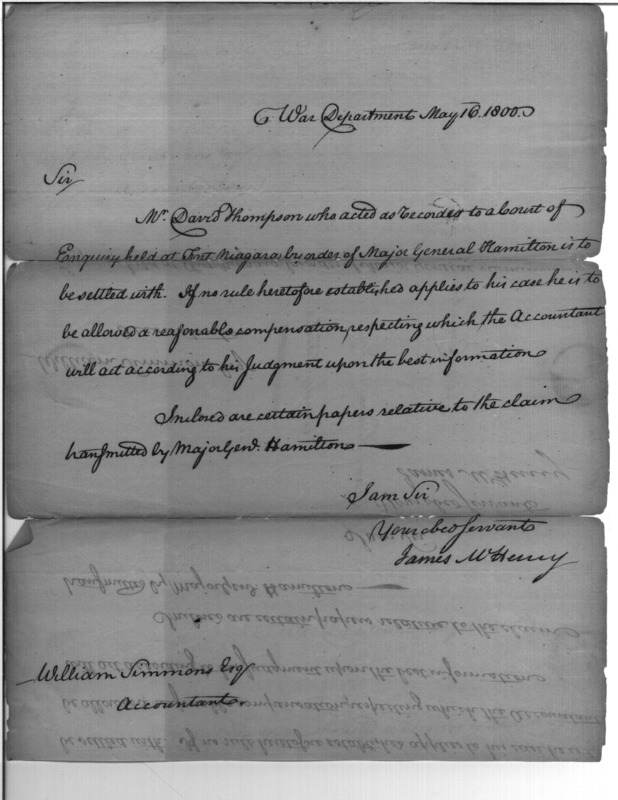 War Department May 16. 1800.
Sir
Mr. David Thompson who acted as Recorder to a Court of
Enquiry held at Fort Niagara by order of Major General Hamilton is to
be settled with. If no rule heretofore established applies to his case he is to
be allowed a reasonable compensation, respecting which the Accountant
will act according to his Judgment upon the best information
Inclosed are certain papers relative to the claim
transmitted by Major Genl. Hamilton
I am Sir
Your obed servant
James McHenry
William Simmons Esq
Accountant.